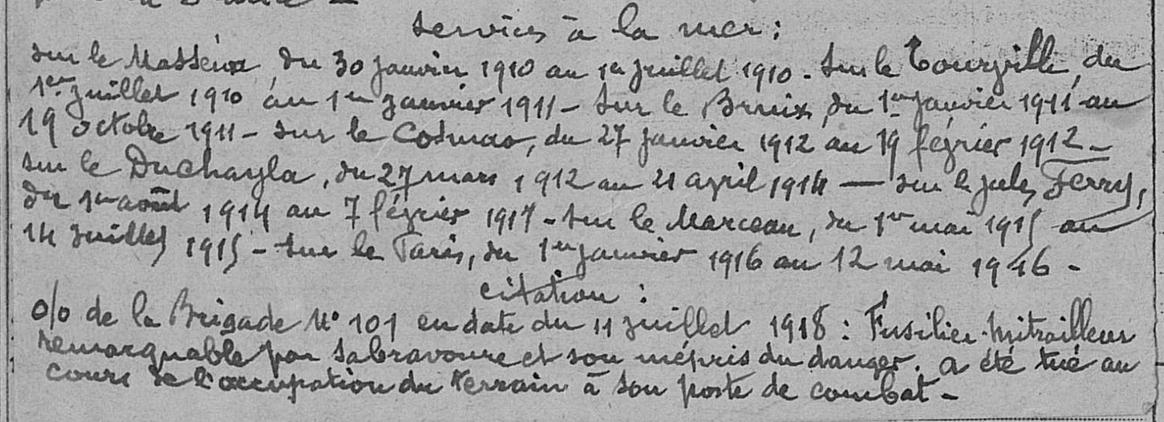 services à la mer :
sur le Masséna, du 30 janvier 1910 au 1er juillet 1910 - sur le Tourville, du
1er juillet 1910 au 1er janvier 1911 - sur le Bruix, du 1er janvier 1911 au
19 octobre 1911 - sur le Cosmao, du 27 janvier 1912 au 19 février 1912 -
sur le Duchayla, du 27 mars 1912 au 21 avril 1914 — sur le Jules Ferry,
du 1er août 1914 au 7 février 1915 - sur le Marceau, du 1er mai 1915 au
14 juillet 1915 - sur le Paris, du 1er janvier 1916 au 12 mai 1916 -
citation :
o/o de la Brigade N° 101 en date du 11 juillet 1918 : Fusilier-mitrailleur
remarquable par sa bravoure et son mépris du danger. a été tué au
cours de l'occupation du terrain à son poste de combat -